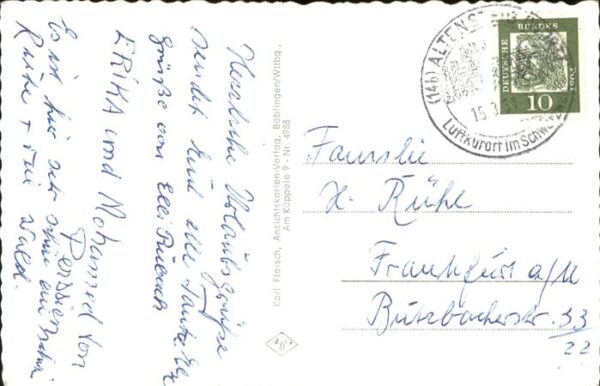 Herzliche Urlaubsgrüße
sendet Euch alle Tante Elly
Grüße von Elli
ERIKA und Mohamed von
Persien
Es ist hier sehr schön ein
Ruhe + viel
Wald.
Karl Fleisch, Ansichtskarten-Verlag, Böblingen/Wttbg.
Am Käppele 9 · Nr. 4988
(14b) ALTENSTEIG
15.3.61
Luftkurort im Schw
DEUTSCHE BUNDESPOST
10
Familie
H. Rühl
Frankfurt a/M
Butzbacherstr. 33
/22